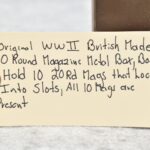 Original WWII British Made
0 Round Magazine Metal Box, Bo
Hold 10 20Rd Mags that Loc
Into Slots, All 10 Mags are
Present